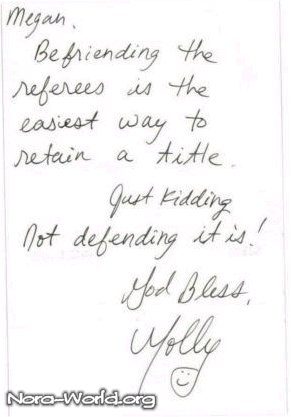 Megan,
Befriending the
referees is the
easiest way to
retain a title.
Just Kidding
Not defending it is!
God Bless,
Molly
Nora-World.org